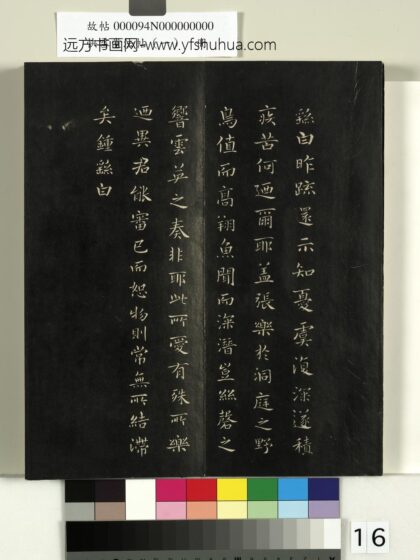 故帖 000094N000000000
远方书画网-www.yfshuhua.com
繇白昨疏還示知憂虞復深遂積
疾苦何迺爾耶蓋張樂於洞庭之野
鳥值而高翔魚聞而深潛豈絲磬之
響雲英之奏非耶此所愛有殊所樂
迺異君能審己而恕物則常無所結滯
矣鍾繇白
16